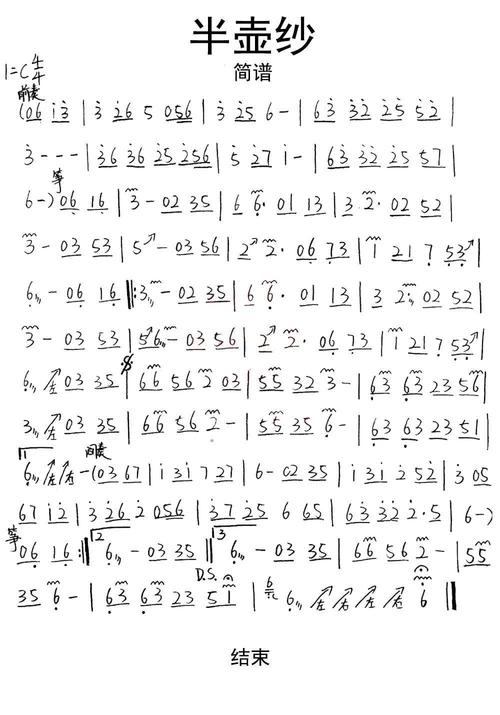 半壶纱
简谱
1=C 4/4
前奏
(06 i3 | 3 26 5 056 | 3 25 6 - | 63 32 25 52 |
3 - - - | 36 36 25 256 | 5 27 i - | 63 32 25 57 |
筝
6 -) 06 16 | 3 - 02 35 | 6 6· 01 13 | 3 2· 02 52 |
3 - 03 53 | 5↗ - 03 56 | 2↗ 2· 06 73 | 1 21 7 53↗ |
6 - 06 16 ‖: 3 - 02 35 | 6 6· 01 13 | 3 2· 02 52 |
3 - 03 53 | 56 - 03 56 | 2↗ 2· 06 73 | 1 21 7 53↗ |
6 左 03 35 | 66 56 2 03 | 55 32 3 - | 63 63 23 56 |
3 左 03 35 | 66 56 2 - | 55 35 6 - | 63 63 23 51 |
1 间奏
6 左右 - (03 67 | i 3i 7 27 | 6 - 02 35 | i 3i 2 52 | 3 05
67 i2 | 3 26 2 056 | 37 25 6 65 | 63 32 2·5 | 6 -)
筝 2 3
06 16 :‖ 6 - 03 35 ‖ 6 - 03 35 | 66 56 2 - | 55
D.S.
35 6 - | 63 63 23 51 | 6 左 右 左 右 6 ‖
结束